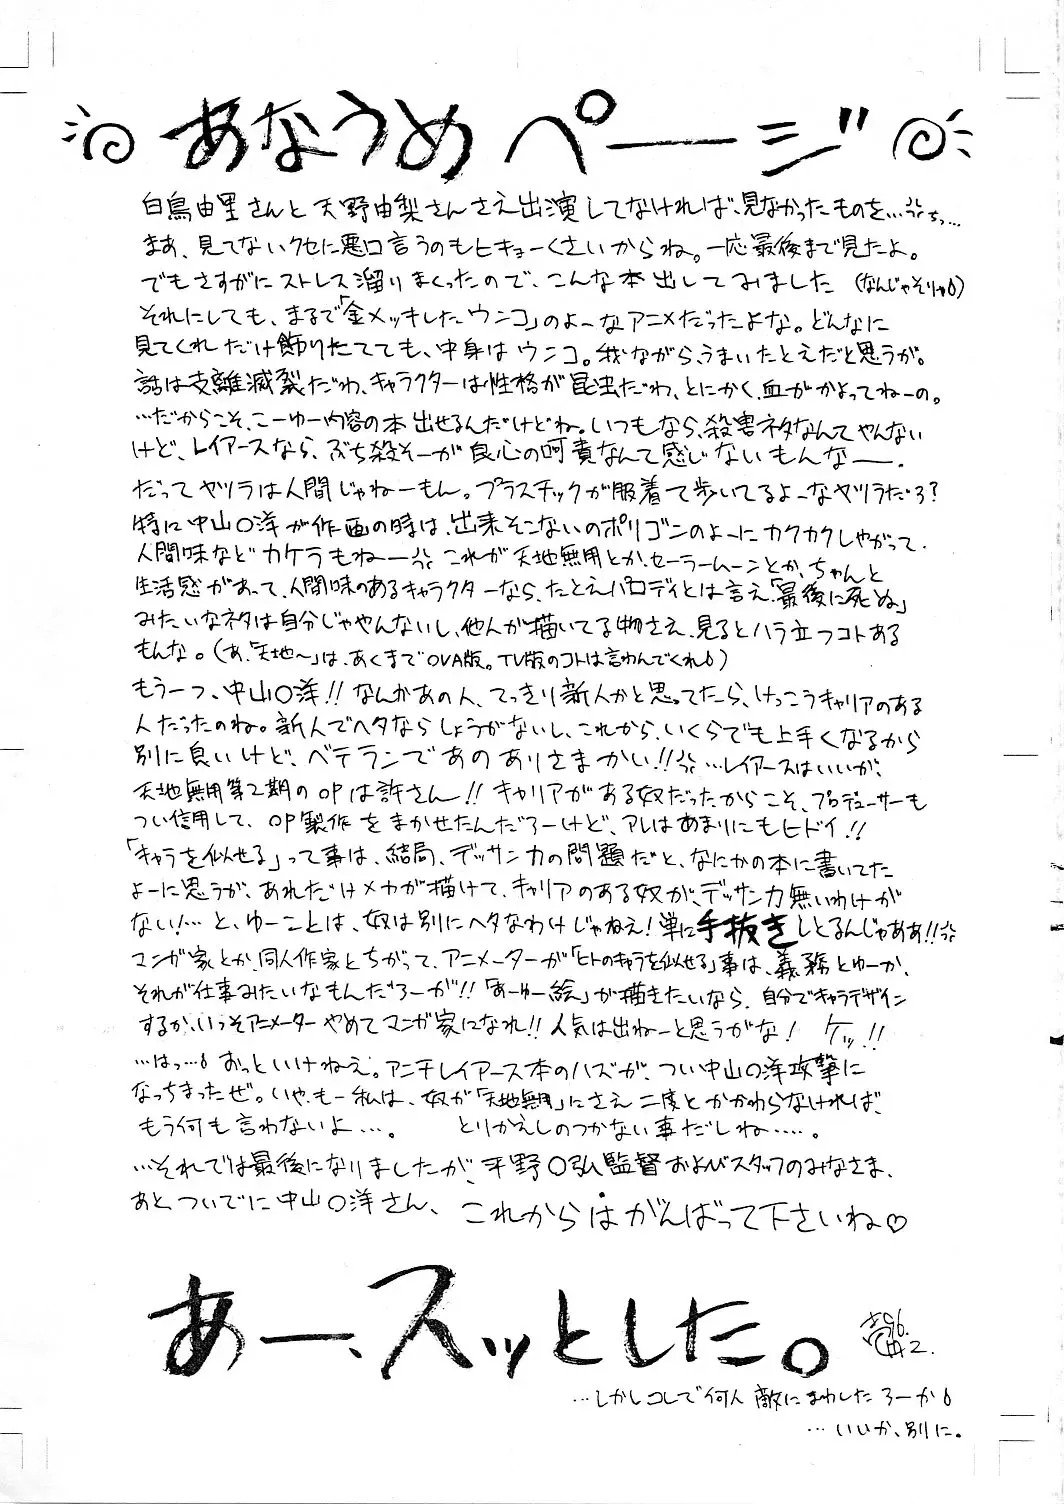 あなうめページ
白鳥由里さんと天野由梨さんさえ出演してなければ、見なかったものを…ちっ…
まあ、見てないクセに悪口言うのもヒキョーくさいからね。一応最後まで見たよ。
でもさすがにストレス溜りまくったので、こんな本出してみました(なんじゃそりゃ)
それにしても、まるで「金メッキしたウンコ」のよーなアニメだったよな。どんなに
見てくれだけ飾りたてても、中身はウンコ。我ながら、うまいたとえだと思うが。
話は支離滅裂だわ、キャラクターは性格が昆虫だわ、とにかく、血がかよってねーの。
…だからこそ、こーゆー内容の本出せるんだけどね。いつもなら、殺害ネタなんてやんない
けど、レイアースなら、ぶち殺そーが良心の呵責なんて感じないもんなー.
だってヤツラは人間じゃねーもん。プラスチックが服着て歩いてるよーなヤツラだろ?
特に中山〇洋が作画の時は、出来そこないのポリゴンのよーにカクカクしやがって、
人間味などカケラもねー これが天地無用とか、セーラームーンとか、ちゃんと
生活感があって、人間味のあるキャラクターなら、たとえパロディとは言え、「最後に死ぬ」
みたいなネタは自分じゃやんないし、他人が描いてる物さえ、見るとハラ立つコトある
もんな。(あ、「天地〜」は、あくまでOVA版。TV版のコトは言わんでくれ)
もう一つ、中山〇洋!! なんかあの人、てっきり新人かと思ってたら、けっこうキャリアのある
人だったのね。新人でヘタならしょうがないし、これから、いくらでも上手くなるから
別に良いけど、ベテランであのありさまかい!! …レイアースはいいが、
天地無用第2期のOPは許さん!! キャリアがある奴だったからこそ、プロデューサーも
つい信用して、OP製作をまかせたんだろーけど、アレはあまりにもヒドイ!!
「キャラを似せる」って事は、結局、デッサン力の問題だと、なにかの本に書いてた
よーに思うが、あれだけメカが描けて、キャリアのある奴が、デッサン力無いわけが
ない!…と、ゆーことは、奴は別にヘタなわけじゃねえ!単に手抜きしとるんじゃああ!!
マンガ家とか、同人作家とちがって、アニメーターが「ヒトのキャラを似せる」事は、義務とゆーか、
それが仕事みたいなもんだろーが!!「あーゆー絵」が描きたいなら、自分でキャラデザイン
するか、いっそアニメーターやめてマンガ家になれ!!人気は出ねーと思うがな! ケッ!!
…はっ… おっといけねえ。アニチレイアース本のハズが、つい中山〇洋攻撃に
なっちまったぜ。いや、もー私は、奴が「天地無用」にさえ二度とかかわらなければ、
もう何も言わないよ…. とりかえしのつかない事だしね….。
…それでは最後になりましたが、平野〇弘監督およびスタッフのみなさま、
あと、ついでに中山〇洋さん、これからはがんばって下さいね♡
あー、スッとした。
'96. 2.
…しかしコレで何人敵にまわしたろーか
…いいか、別に。